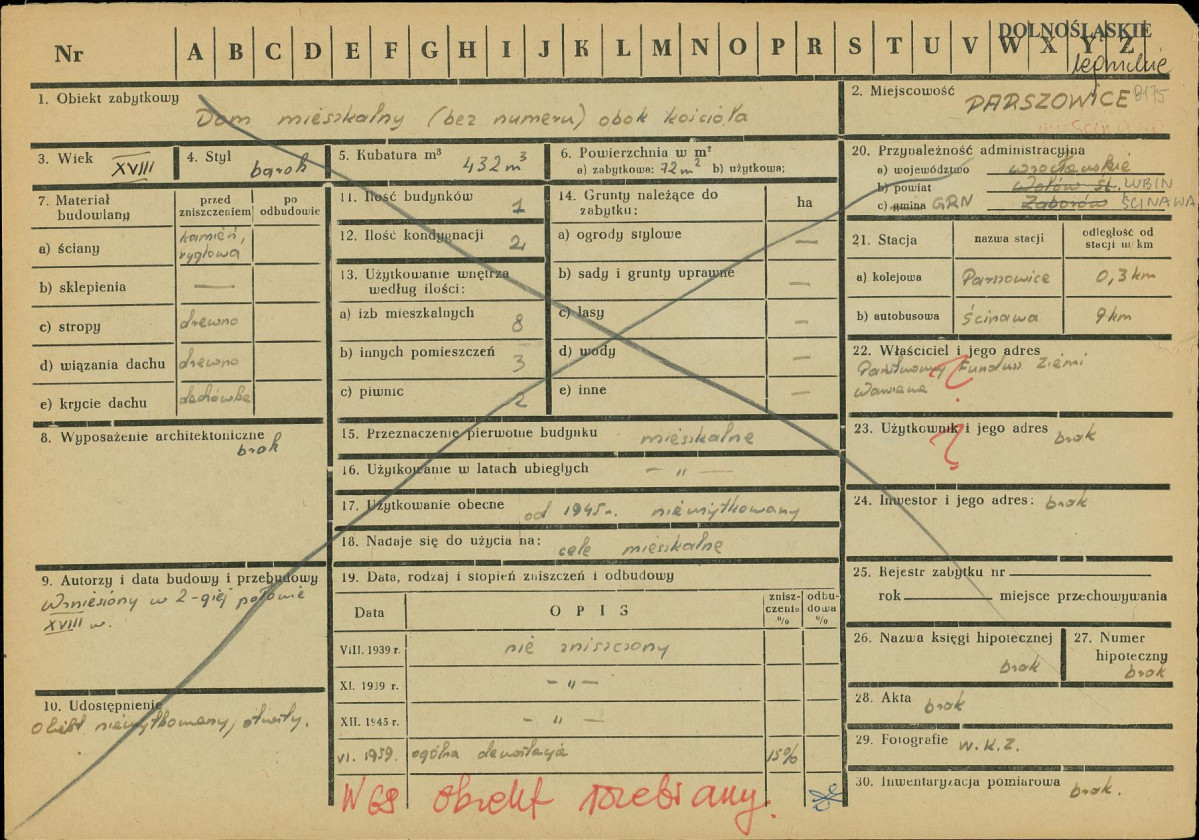 Nr A B C D E F G H I J K L M N O P R S T U V W X Y Z
DOLNOŚLĄSKIE
legnickie
1. Obiekt zabytkowy
Dom mieszkalny (bez numeru) obok kościoła
2. Miejscowość
PARSZOWICE 8175
3. Wiek
XVIII
4. Styl
barok
5. Kubatura m³
432 m³
6. Powierzchnia w m²
a) zabytkowa: 72 m² b) użytkowa:
20. Przynależność administracyjna
a) województwo wrocławskie
b) powiat Wołów śl. LUBIN
c) gmina GRN Zaborów ŚCINAWA
7. Materiał budowlany
przed zniszczeniem
po odbudowie
a) ściany kamień, ryglowa
b) sklepienia —
c) stropy drewno
d) wiązania dachu drewno
e) krycie dachu dachówka
8. Wyposażenie architektoniczne
brak
9. Autorzy i data budowy i przebudowy
Wzniesiony w 2-giej połowie
XVIII w.
10. Udostępnienie
Obiekt nieużytkowany, otwarty.
11. Ilość budynków 1
12. Ilość kondygnacji 2
13. Użytkowanie wnętrza
według ilości:
a) izb mieszkalnych 8
b) innych pomieszczeń 3
c) piwnic 2
14. Grunty należące do
zabytku: ha
a) ogrody stylowe —
b) sady i grunty uprawne —
c) lasy —
d) wody —
e) inne —
15. Przeznaczenie pierwotne budynku mieszkalne
16. Użytkowanie w latach ubiegłych — " —
17. Użytkowanie obecne od 1945 r. nieużytkowany
18. Nadaje się do użycia na: cele mieszkalne
19. Data, rodzaj i stopień zniszczeń i odbudowy
Data OPIS zniszczenie % odbudowa %
VIII. 1939 r. nie zniszczony
XI. 1939 r. — " —
XII. 1945 r. — " —
VI. 1959. ogólna dewastacja 15%
W 68 obiekt rozebrany.
21. Stacja nazwa stacji odległość od stacji w km
a) kolejowa Parszowice 0,3 km
b) autobusowa Ścinawa 9 km
22. Właściciel i jego adres
Państwowy Fundusz Ziemi
?
23. Użytkownik i jego adres brak
?
24. Inwestor i jego adres: brak
25. Rejestr zabytku nr
rok miejsce przechowywania
26. Nazwa księgi hipotecznej
brak
27. Numer hipoteczny
brak
28. Akta brak
29. Fotografie W.K.Z.
30. Inwentaryzacja pomiarowa brak.